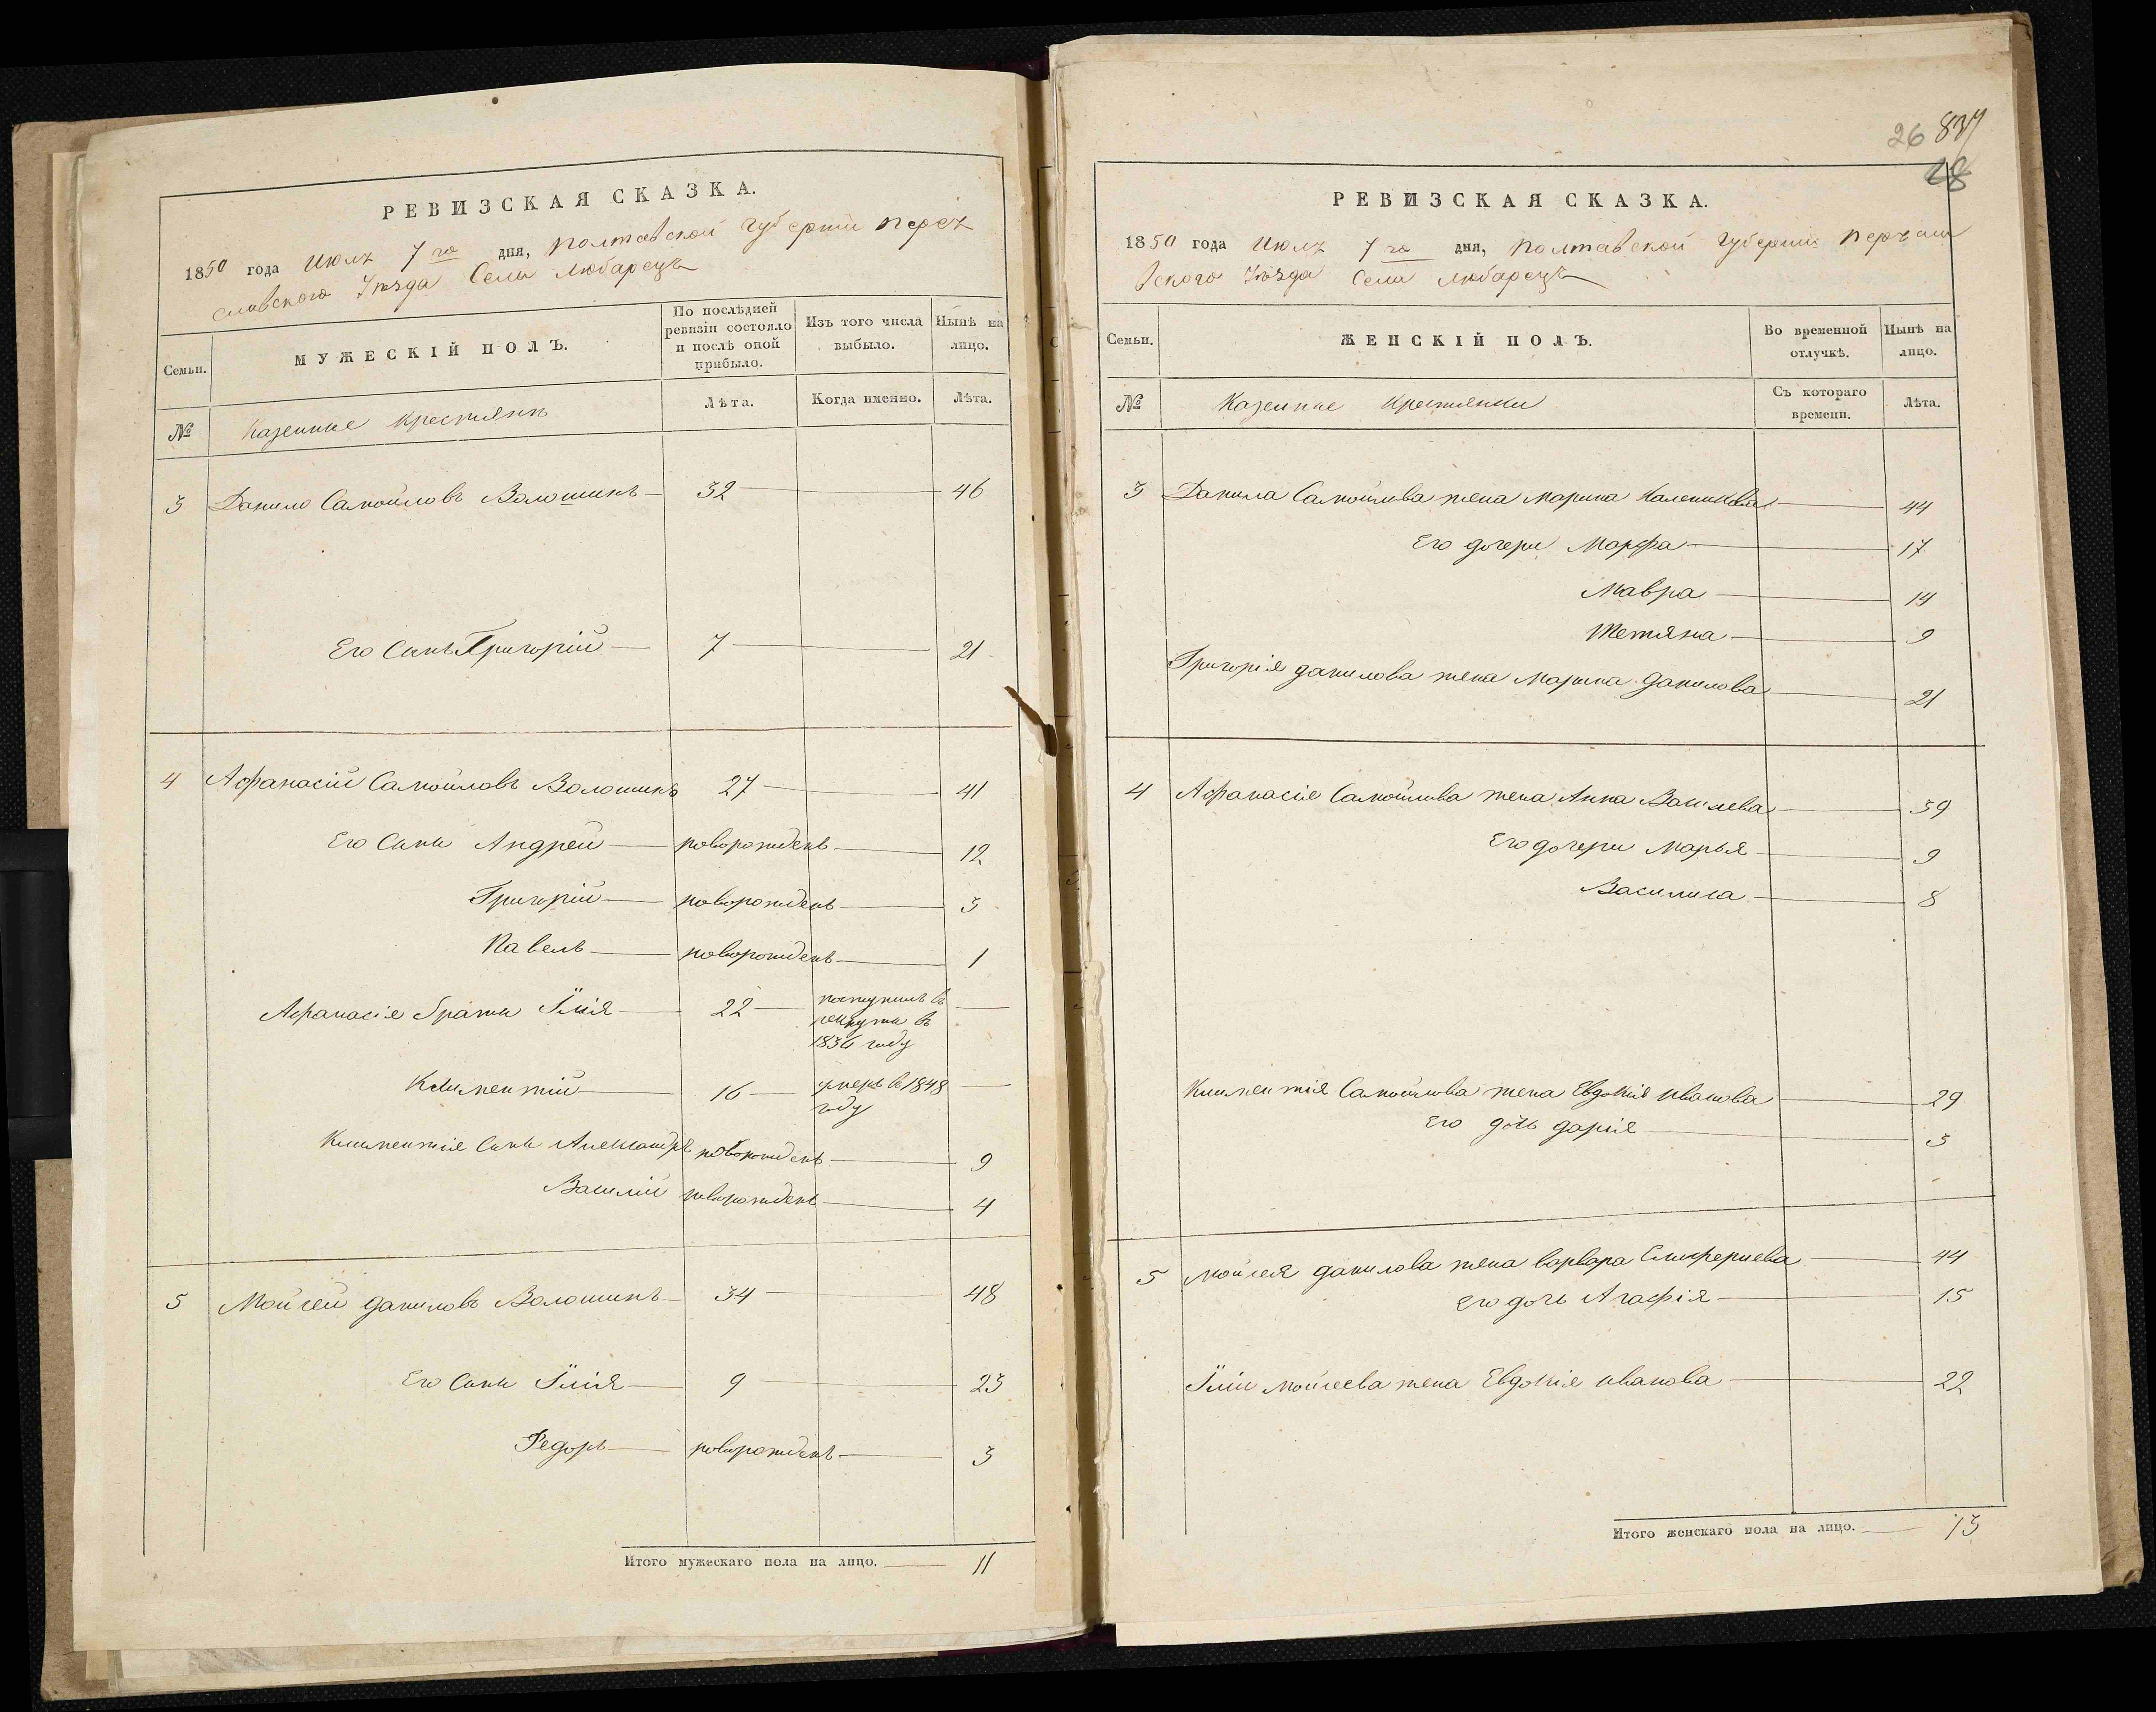 РЕВИЗСКАЯ СКАЗКА.
1850 года Июля 7го дня, Полтавской Губернии Перея
славского Уезда Села Любарецъ
Семьи.
МУЖЕСКІЙ ПОЛЪ.
По послѣдней ревизіи состояло и послѣ оной прибыло.
Изъ того числа выбыло.
Нынѣ на лицо.
№
Казенные крестьяне
Лѣта.
Когда именно.
Лѣта.
3 Данило Самойловъ Волошинъ 32 46
Его Сынъ Григорій 7 21
4 Афанасій Самойловъ Волошинъ 27 41
Его Сыны Андрей новорожденъ 12
Григорій новорожденъ 3
Павелъ новорожденъ 1
Афанасія браты Илія 22 поступилъ в рекруты в 1836 году
Климентій 16 умеръ в 1848 году
Климентія Сыны Александръ новорожденъ 9
Василій новорожденъ 4
5 Мойсей Даниловъ Волошинъ 34 48
Его Сыны Илія 9 23
Федоръ новорожденъ 3
Итого мужескаго пола на лицо. 11
26 837
28
РЕВИЗСКАЯ СКАЗКА.
1850 года Июля 7го дня, Полтавской Губернии Переясла
вского Уѣзда Села Любарецъ
Семьи.
ЖЕНСКІЙ ПОЛЪ.
Во временной отлучкѣ.
Нынѣ на лицо.
№
Казенные Крестянки
Съ котораго времени.
Лѣта.
3 Данила Самойлова жена Марина Каленикова 44
Его дочери Марфа 17
Мавра 14
Тетяна 9
Григорія Данилова жена Марина Данилова 21
4 Афанасія Самойлова жена Анна Василева 39
Его дочери Марья 9
Василиса 8
Климентія Самойлова жена Евдокія Иванова 29
Его дочь Дарія 3
5 Мойсея Данилова жена Варвара Елисфериева 44
Его дочь Агафія 15
Иліи Мойсеева жена Евдокія Иванова 22
Итого женскаго пола на лицо. 13